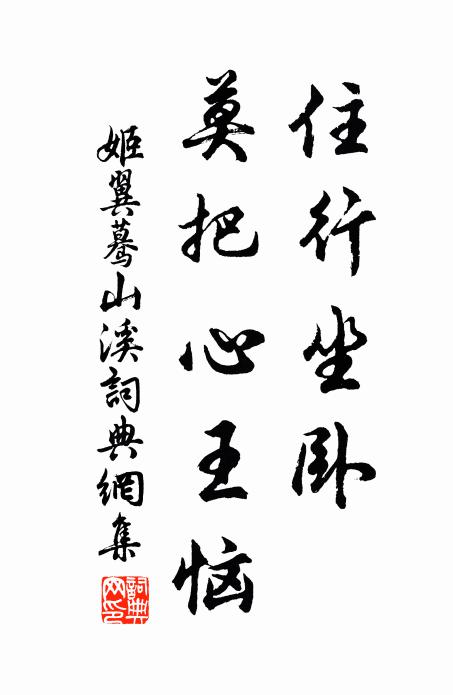 住行坐卧
莫把心王恼
姬翼蓦山溪詞典網集
詞典網印